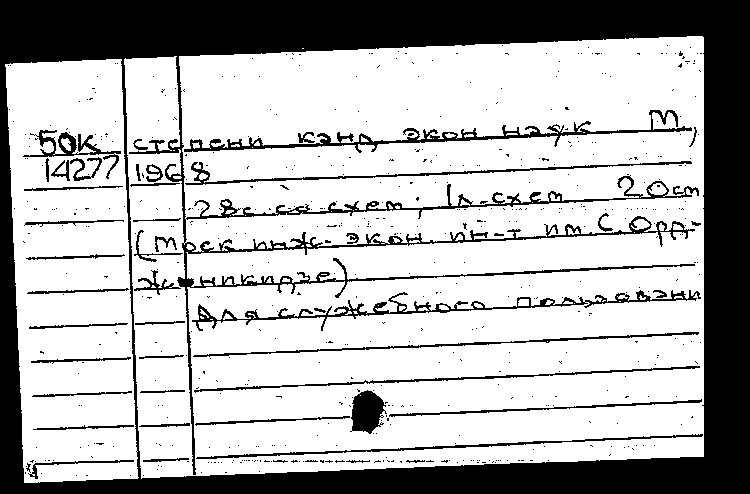 50К степени канд экон наук М,
14277 1968
28с. со схем; 1л. схем 20 см
(Моск инж-экон. ин-т им. С. Орд-
жоникидзе)
Для служебного пользовани